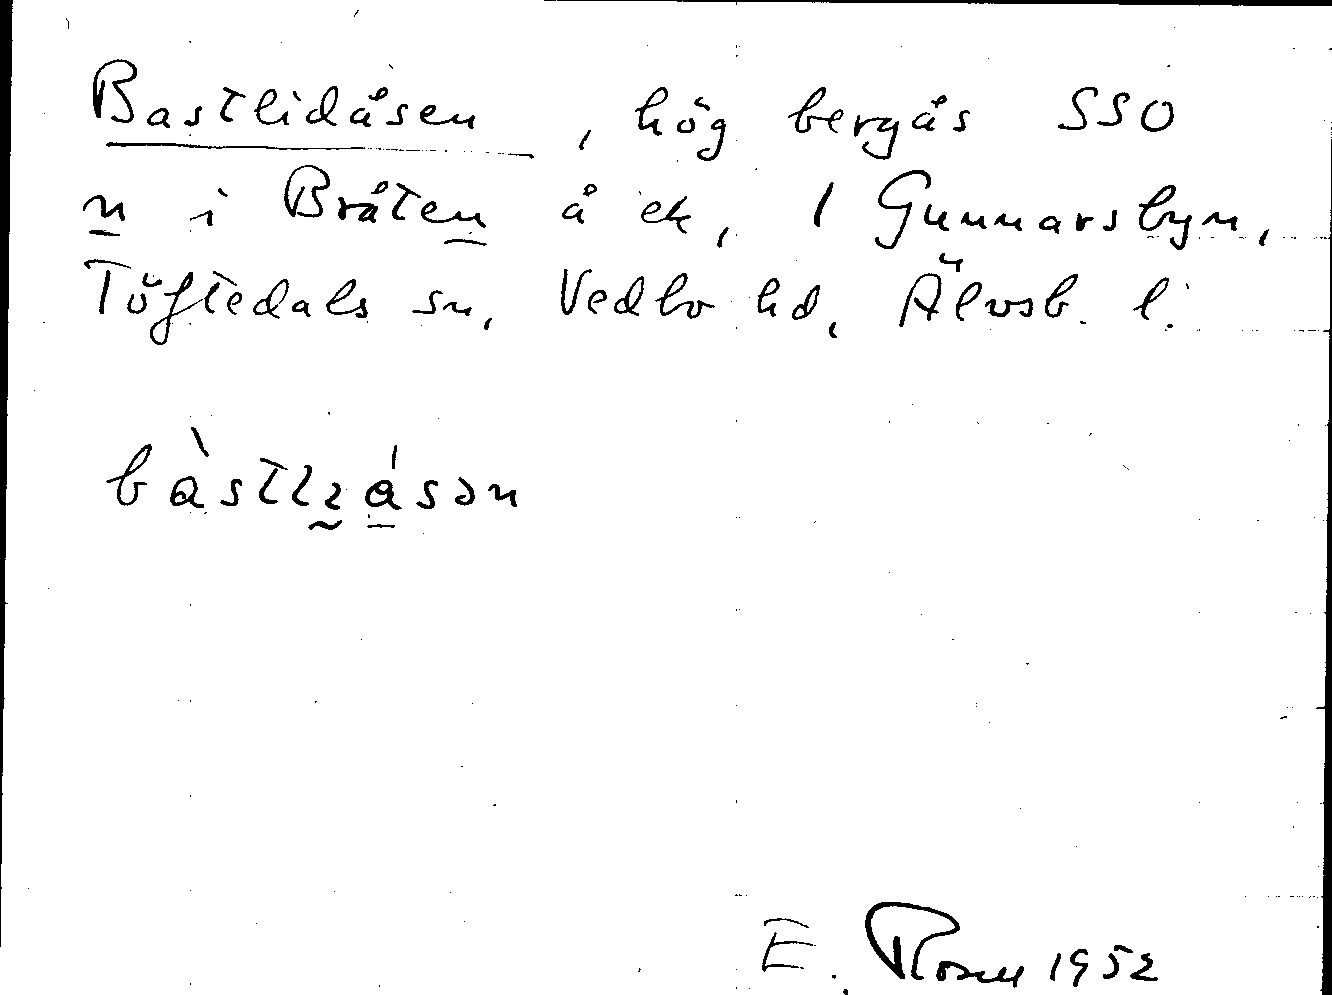 Bastlidåsen, hög bergås SSO
n i Bråten å ek, 1 Gunnarsbyn,
Töftedals sn, Vedbo hd, Älvsb. l.
E. Rosell 1952